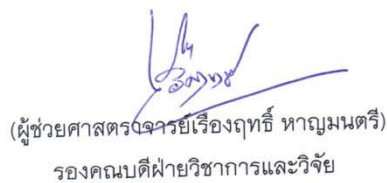 (ผู้ช่วยศาสตราจารย์เรืองฤทธิ์ หาญมนตรี)
รองคณบดีฝ่ายวิชาการและวิจัย